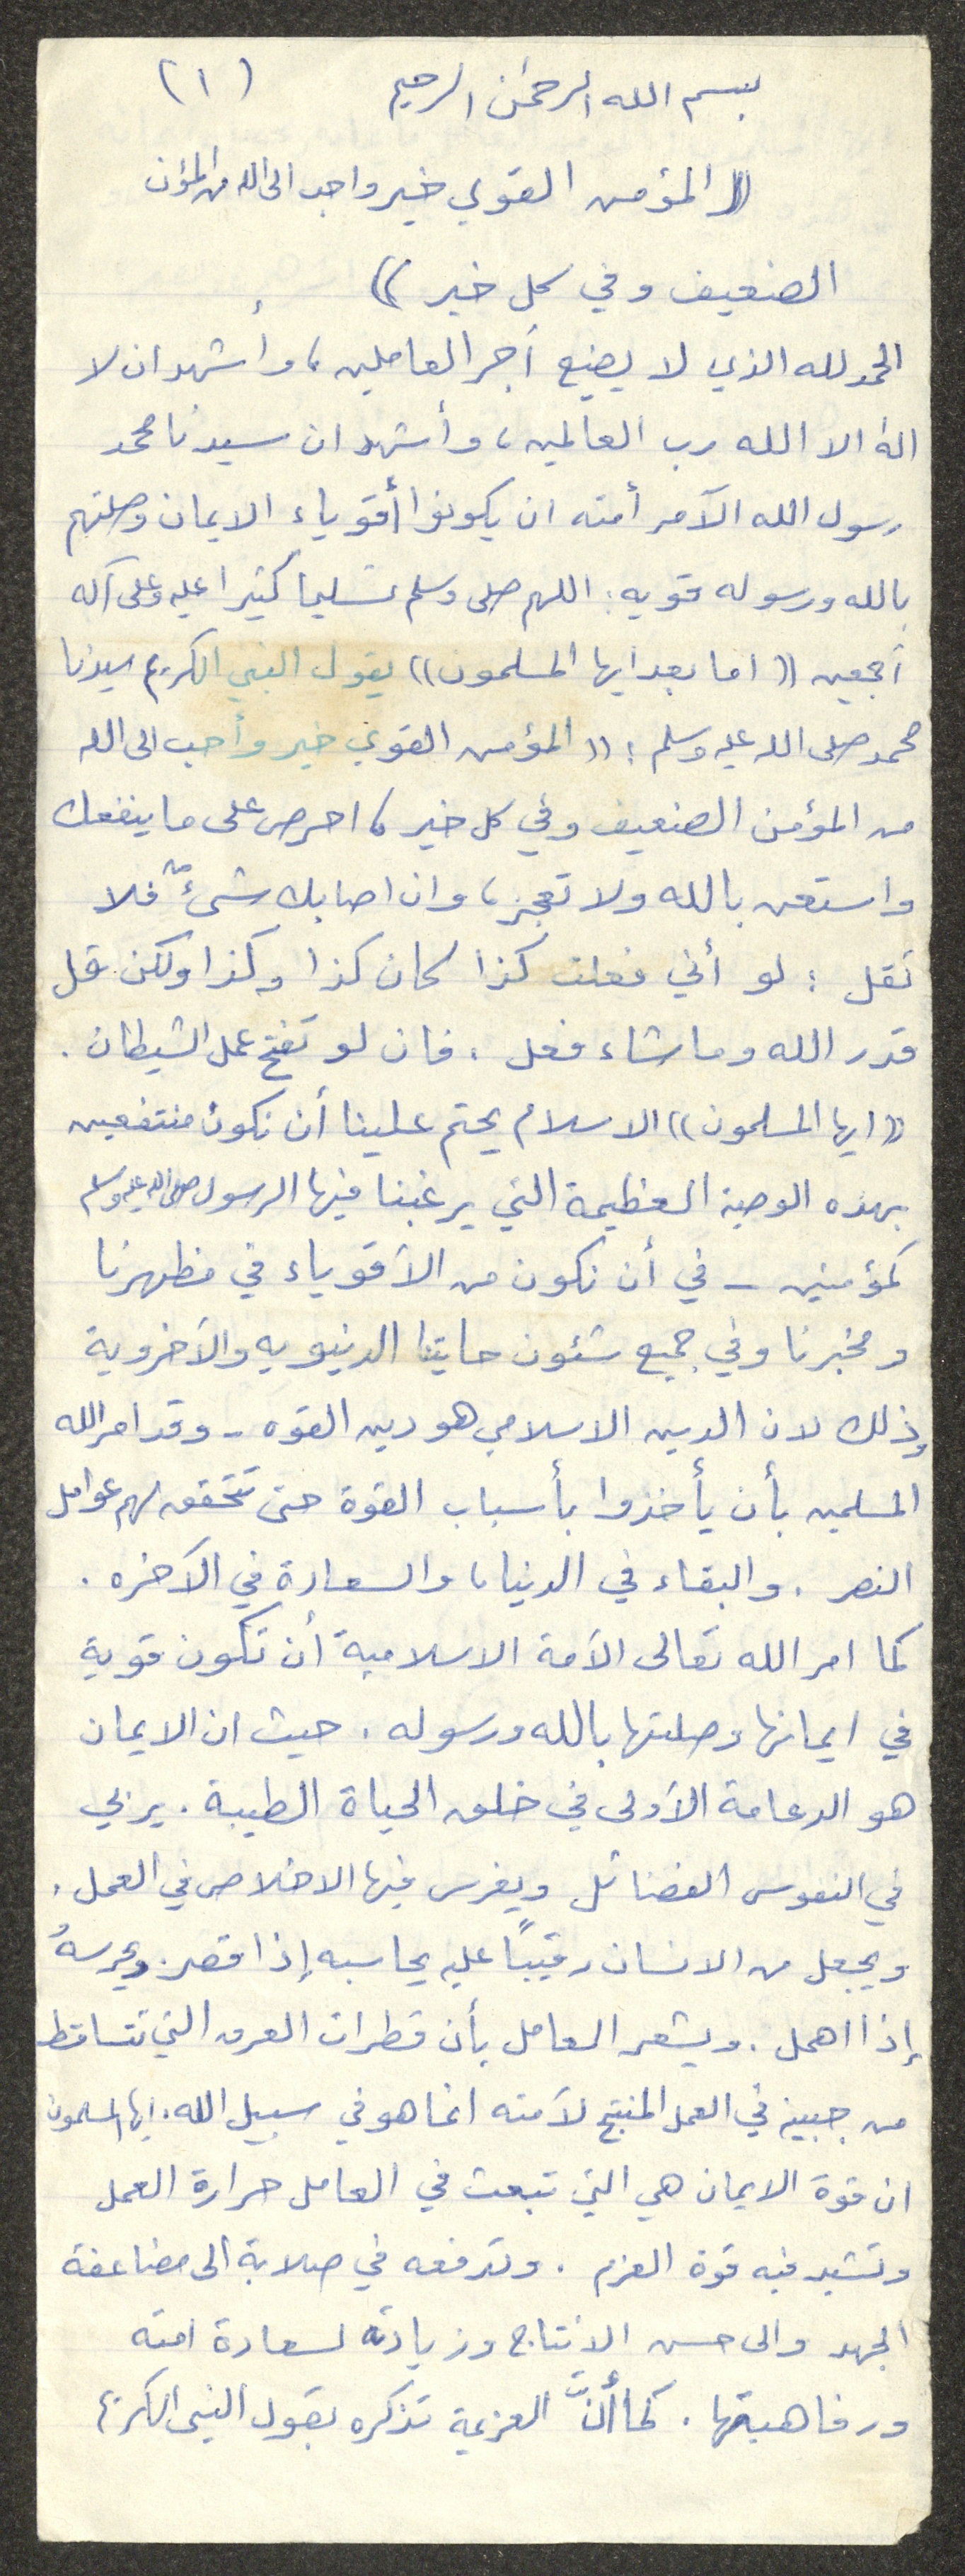 بسم الله الرحمن الرحيم (١)
((المؤمن القوي خير واحب الى الله من المؤمن
الضعيف وفي كل خير))
الحمد لله الذي لا يضيع أجر العاملين، وأشهد ان لا
اله الا الله رب العالمين، وأشهد ان سيدنا محمد
رسول الله الآمر أمته ان يكونوا أقوياء الايمان وصلتهم
بالله ورسوله قويه: اللهم صلى وسلم تسليما كثيرا عليه وعلى آله
أجمعين ((اما بعد ايها المسلمون)) يقول النبي الكريم سيدنا
محمد صلى الله عليه وسلم: ((المؤمن القوي خير وأحب الى الله
من المؤمن الضعيف وفي كل خير، احرص على ما ينفعك
واستعن بالله ولا تعجز، وان اصابك شىءٌ فلا
تقل: لو أني فعلت كذا لكان كذا وكذا ولكن قل
قدر الله وما شاء فعل، فان لو تفتح عمل الشيطان.
((ايها المسلمون)) الاسلام يحتم علينا أن نكون منتفعين
بهذه الوصية العظيمة التي يرغبنا فيها الرسول صلى الله عليه وسلم
كمؤمنين - في أن نكون من الأقوياء في مظهرنا
ومخبرنا وفي جميع شئون حايتنا الدنيويه والأخروية
وذلك لان الدين الاسلامي هو دين القوه - وقد امر الله
المسلمين بأن يأخذوا بأسباب القوة حتى تتحقق لهم عوامل
النصر، والبقاء في الدنيا، والسعادة في الآخره.
كما امر الله تعالى الأمة الاسلامية أن تكون قوية
في ايمانها وصلتها بالله ورسوله، حيث ان الايمان
هو الدعامة الأولى في خلق الحياة الطيبة. يربي
في النفوس الفضائل ويغرس فيها الاخلاص في العمل،
ويجعل من الانسان رقيبًا عليه يحاسبه إذا قصر. ويحرسهُ
إذا اهمل. ويشعر العامل بأن قطرات العرق التي تتساقط
من جبينه في العمل المنتج لأمته انما هو في سبيل الله. ايها المسلمون
ان قوة الايمان هي التي تبعث في العامل حرارة العمل
وتشيد فيه قوة العزم. وتدفعه في صلابة الى مضاعفة
الجهد والى حسن الانتاج وزيادته لسعادة امته
ورفاهيتها. كما أنَّ العزيمة تذكره بقول النبى الكريم